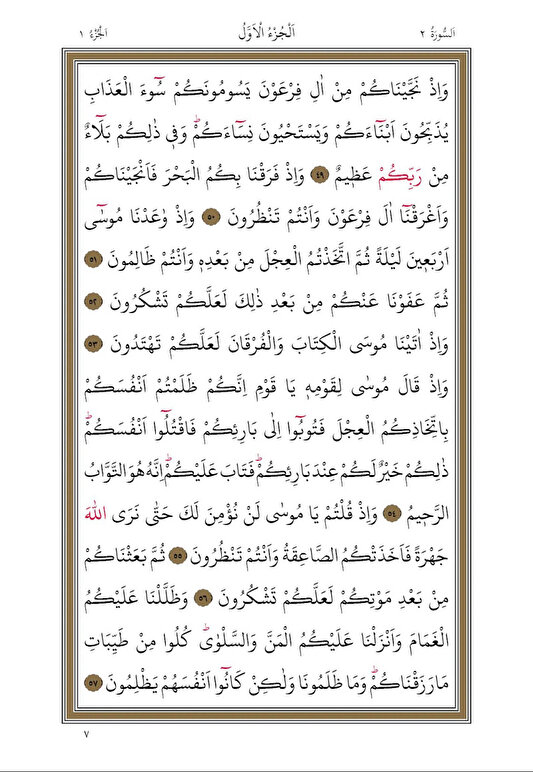 اَلسُّورَةُ ٢
اَلْجُزْءُ الْاَوَّلُ
اَلْجُزْءُ ١
وَاِذْ نَجَّيْنَاكُمْ مِنْ اٰلِ فِرْعَوْنَ يَسُومُونَكُمْ سُٓوءَ الْعَذَابِ
يُذَبِّحُونَ اَبْنَٓاءَكُمْ وَيَسْتَحْيُونَ نِسَٓاءَكُمْۜ وَف۪ي ذٰلِكُمْ بَلَٓاءٌ
مِنْ رَبِّكُمْ عَظ۪يمٌ ﴿٤٩﴾ وَاِذْ فَرَقْنَا بِكُمُ الْبَحْرَ فَاَنْجَيْنَاكُمْ
وَاَغْرَقْنَٓا اٰلَ فِرْعَوْنَ وَاَنْتُمْ تَنْظُرُونَ ﴿٥٠﴾ وَاِذْ وٰعَدْنَا مُوسٰٓى
اَرْبَع۪ينَ لَيْلَةً ثُمَّ اتَّخَذْتُمُ الْعِجْلَ مِنْ بَعْدِه۪ وَاَنْتُمْ ظَالِمُونَ ﴿٥١﴾
ثُمَّ عَفَوْنَا عَنْكُمْ مِنْ بَعْدِ ذٰلِكَ لَعَلَّكُمْ تَشْكُرُونَ ﴿٥٢﴾
وَاِذْ اٰتَيْنَا مُوسَى الْكِتَابَ وَالْفُرْقَانَ لَعَلَّكُمْ تَهْتَدُونَ ﴿٥٣﴾
وَاِذْ قَالَ مُوسٰى لِقَوْمِه۪ يَا قَوْمِ اِنَّكُمْ ظَلَمْتُمْ اَنْفُسَكُمْ
بِاتِّخَاذِكُمُ الْعِجْلَ فَتُوبُٓوا اِلٰى بَارِئِكُمْ فَاقْتُلُٓوا اَنْفُسَكُمْۜ
ذٰلِكُمْ خَيْرٌ لَكُمْ عِنْدَ بَارِئِكُمْۜ فَتَابَ عَلَيْكُمْۜ اِنَّهُ هُوَ التَّوَّابُ
الرَّح۪يمُ ﴿٥٤﴾ وَاِذْ قُلْتُمْ يَا مُوسٰى لَنْ نُؤْمِنَ لَكَ حَتّٰى نَرَى اللّٰهَ
جَهْرَةً فَاَخَذَتْكُمُ الصَّاعِقَةُ وَاَنْتُمْ تَنْظُرُونَ ﴿٥٥﴾ ثُمَّ بَعَثْنَاكُمْ
مِنْ بَعْدِ مَوْتِكُمْ لَعَلَّكُمْ تَشْكُرُونَ ﴿٥٦﴾ وَظَلَّلْنَا عَلَيْكُمُ
الْغَمَامَ وَاَنْزَلْنَا عَلَيْكُمُ الْمَنَّ وَالسَّلْوٰىۜ كُلُوا مِنْ طَيِّبَاتِ
مَا رَزَقْنَاكُمْۜ وَمَا ظَلَمُونَا وَلٰكِنْ كَانُٓوا اَنْفُسَهُمْ يَظْلِمُونَ ﴿٥٧﴾
٧